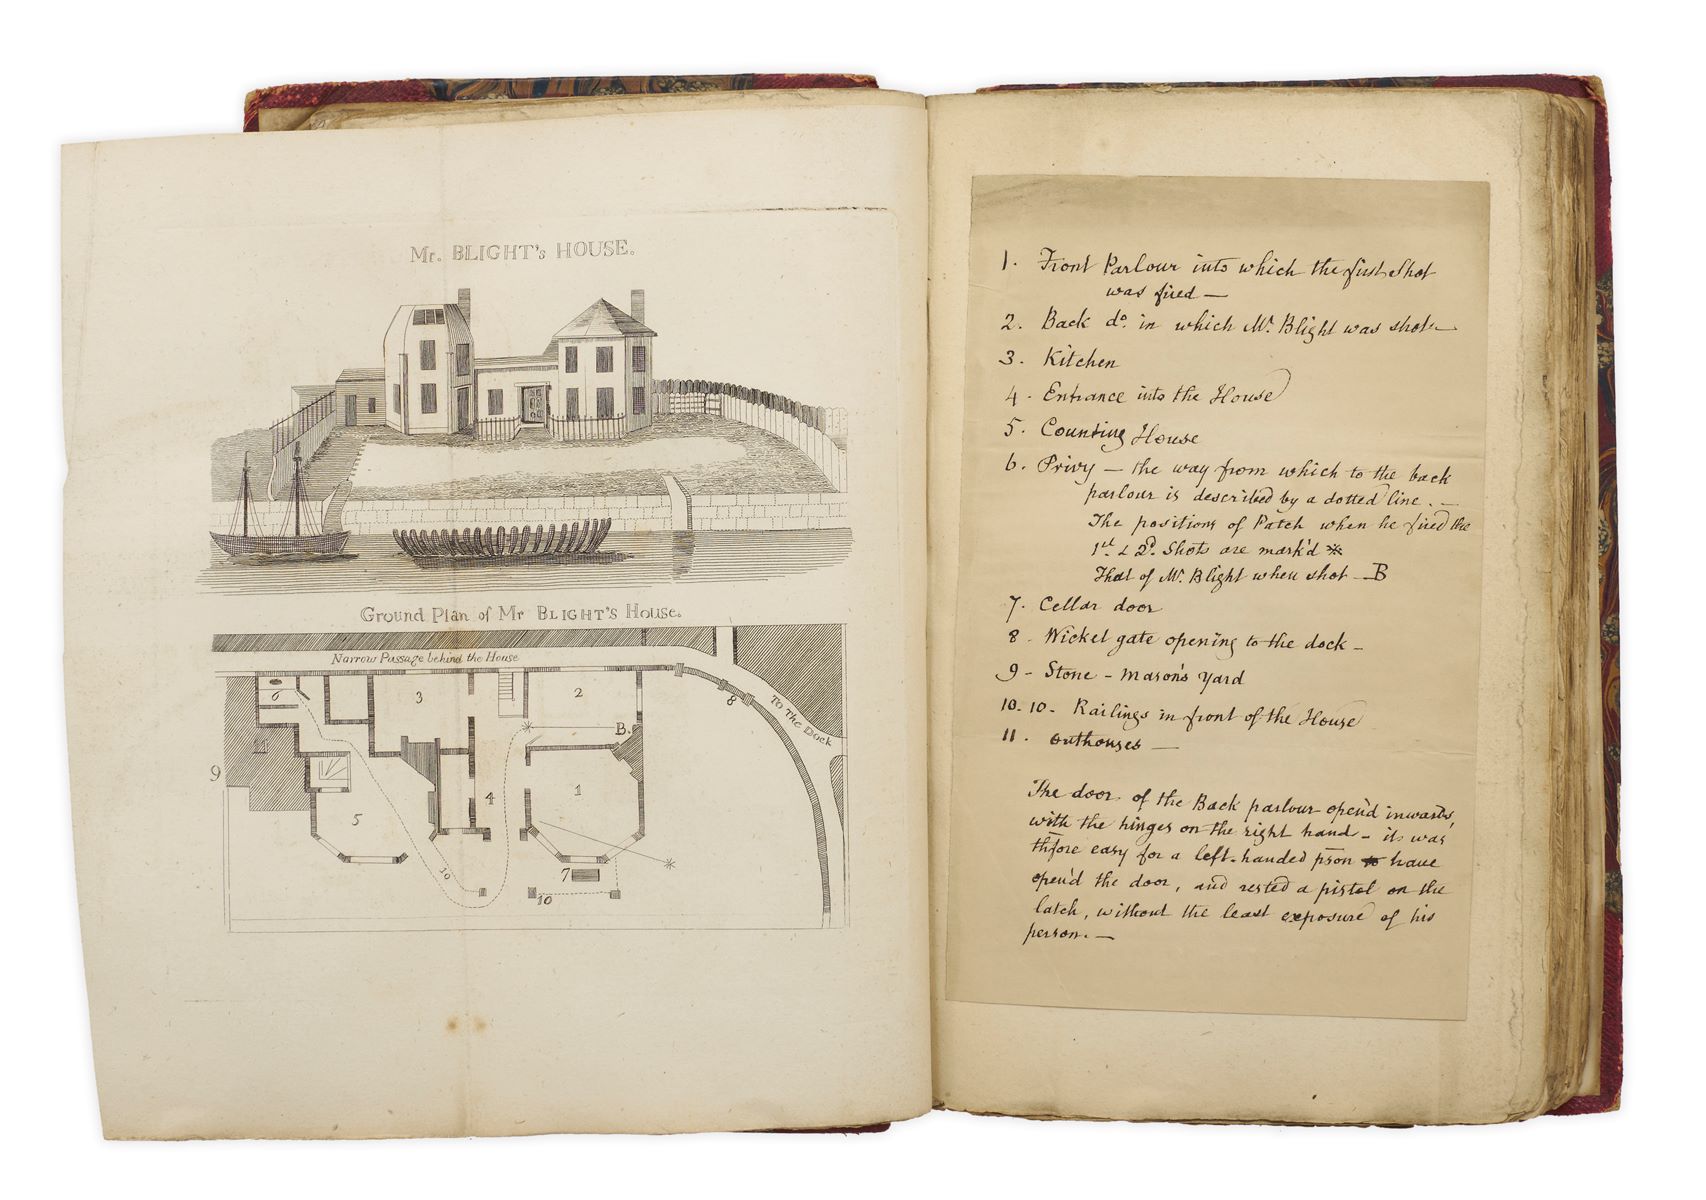 Mr. BLIGHT's HOUSE.
Ground Plan of Mr BLIGHT'S HOUSE.
Narrow Passage behind the House
6
3
2
8
To The Dock
B.
11
9
4
1
5
10
7
10
1. Front Parlour into which the first shot
was fired —
2. Back do. in which Mr. Blight was shot —
3. Kitchen
4. Entrance into the House
5. Counting House
6. Privy — the way from which to the back
parlour is described by a dotted line. —
The positions of Patch when he fired the
1st. & 2d. Shots are mark'd *
That of Mr. Blight when shot — B
7. Cellar door
8. Wicket gate opening to the dock —
9 - Stone - Mason's Yard
10. 10. Railings in front of the House
11. Outhouses —
The door of the Back parlour open'd inwards,
with the hinges on the right hand - it was
thfore easy for a left-handed pson to have
open'd the door, and rested a pistol on the
latch, without the least exposure of his
person. —